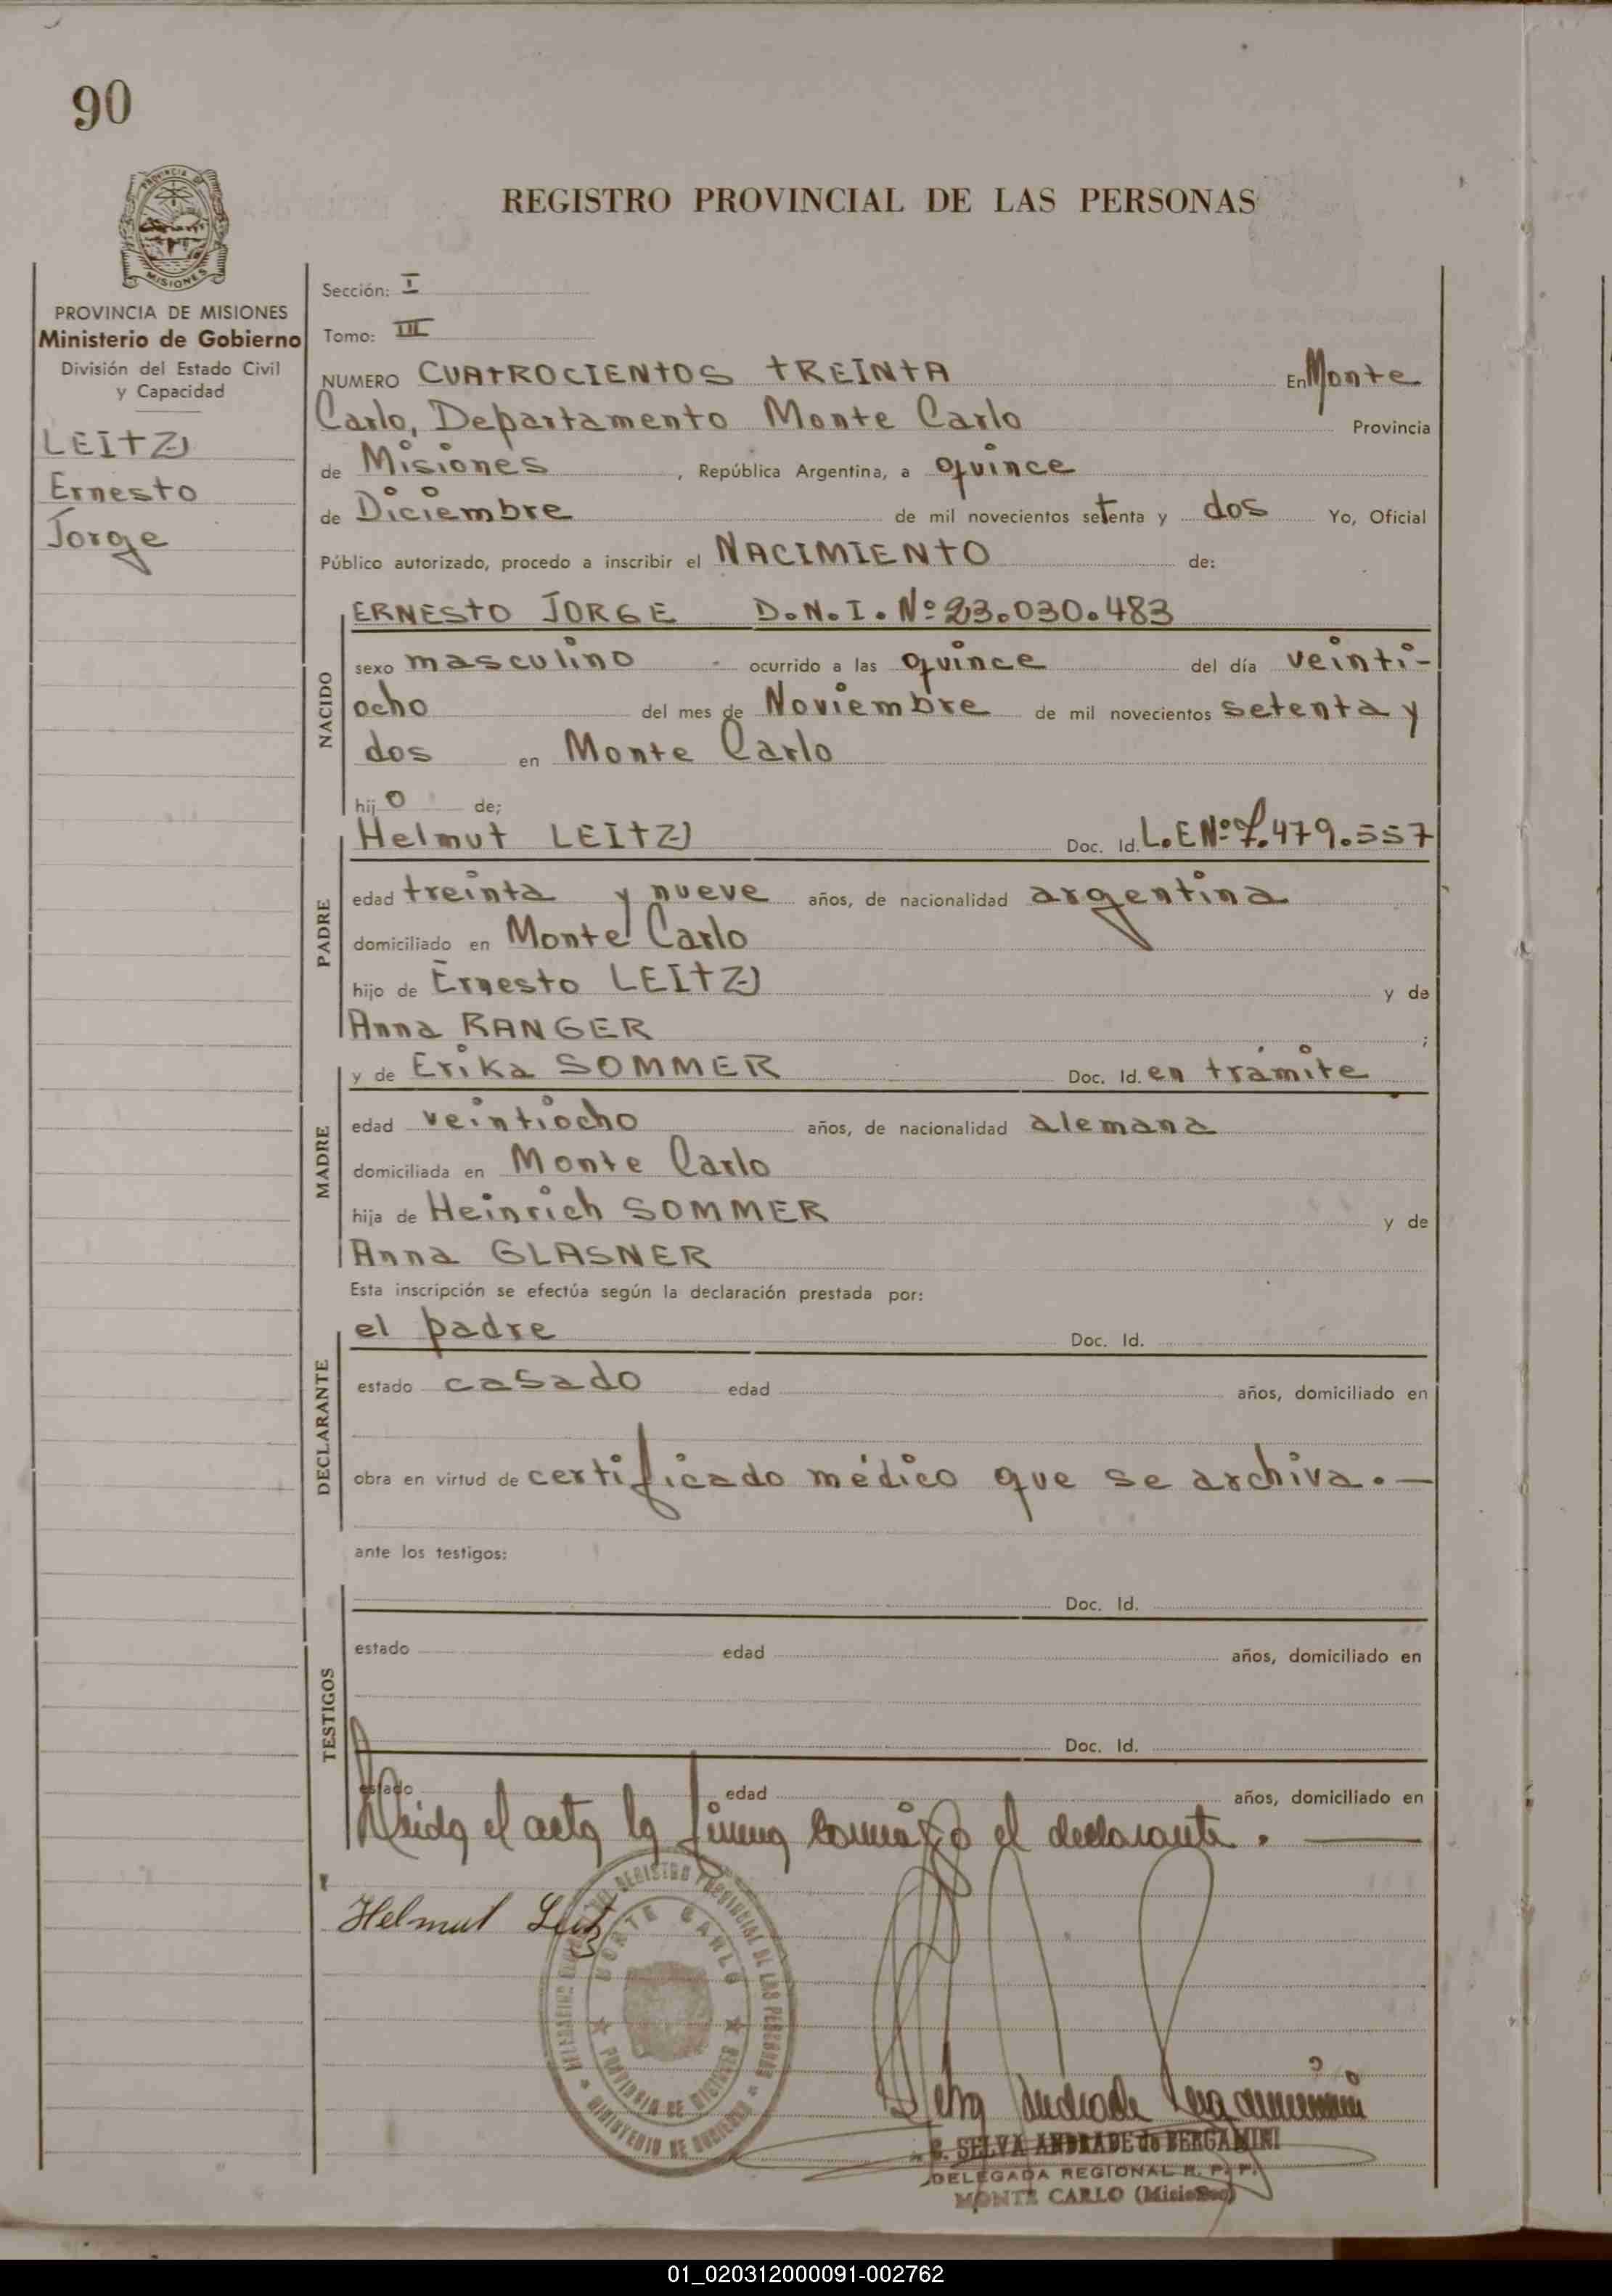 90
PROVINCIA DE
MISIONES
REGISTRO PROVINCIAL DE LAS PERSONAS
PROVINCIA DE MISIONES
Ministerio de Gobierno
División del Estado Civil
y Capacidad
LEITZ
Ernesto
Jorge
Sección: I
Tomo: III
NUMERO CUATROCIENTOS TREINTA En Monte
Carlo, Departamento Monte Carlo Provincia
de Misiones, República Argentina, a quince
de Diciembre de mil novecientos setenta y dos Yo, Oficial
Público autorizado, procedo a inscribir el NACIMIENTO de:
NACIDO
ERNESTO JORGE D.N.I. Nº 23.030.483
sexo masculino ocurrido a las quince del día veinti-
ocho del mes de Noviembre de mil novecientos setenta y
dos en Monte Carlo
hijo de;
PADRE
Helmut LEITZ Doc. Id. L.E Nº 7.479.557
edad treinta y nueve años, de nacionalidad argentina
domiciliado en Monte Carlo
hijo de Ernesto LEITZ y de
Anna RANGER ;
MADRE
y de Erika SOMMER Doc. Id. en trámite
edad veintiocho años, de nacionalidad alemana
domiciliada en Monte Carlo
hija de Heinrich SOMMER y de
Anna GLASNER
Esta inscripción se efectúa según la declaración prestada por:
DECLARANTE
el padre Doc. Id.
estado casado edad años, domiciliado en
obra en virtud de certificado médico que se archiva.—
ante los testigos:
TESTIGOS
Doc. Id.
estado edad años, domiciliado en
Doc. Id.
estado edad años, domiciliado en
Leida el acta la firma conmigo el declarante. —
Helmut Leitz
DEL REGISTRO PROVINCIAL DE LAS PERSONAS
MONTE CARLO
PROVINCIA DE MISIONES
MINISTERIO DE GOBIERNO
Selva Andrade Bergamini
SELVA ANDRADE de BERGAMINI
DELEGADA REGIONAL R. P. P.
MONTE CARLO (Misiones)
01_020312000091-002762